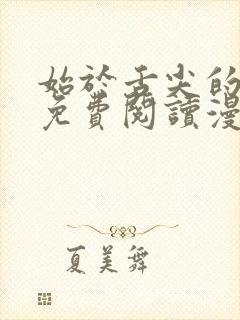 始於舌尖的
免費閱讀漫
夏美舞